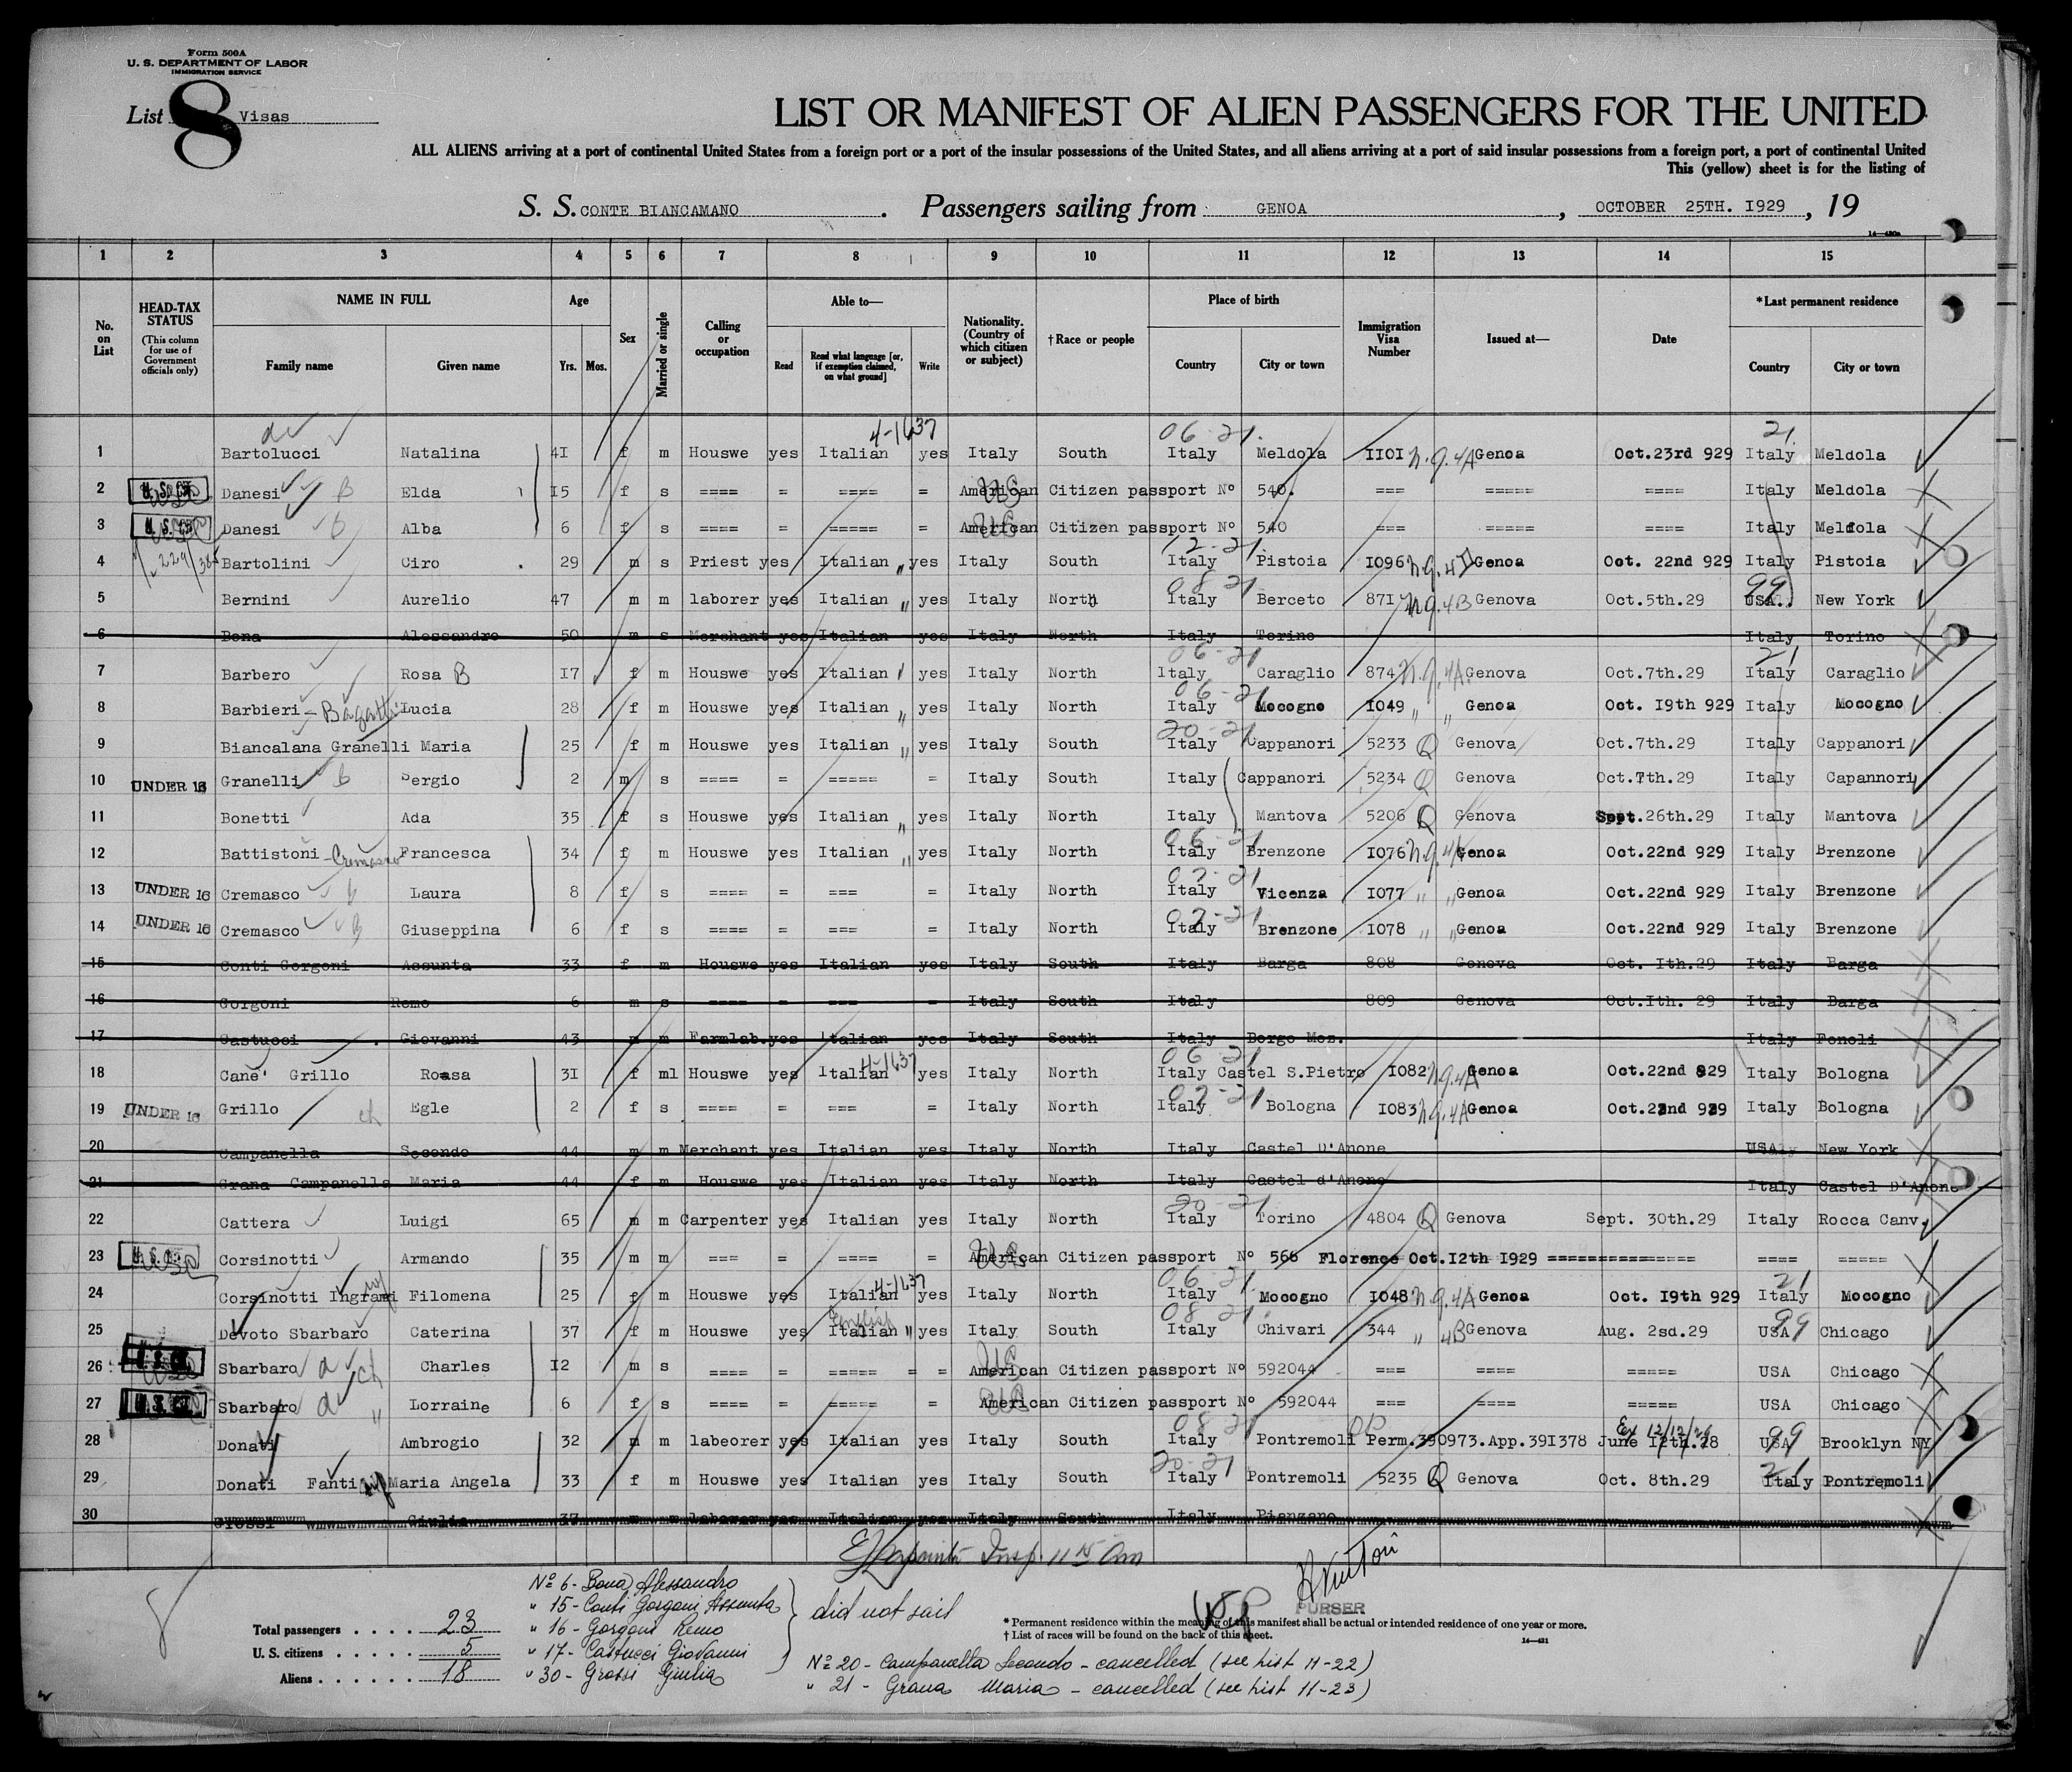 Form 500A
U. S. DEPARTMENT OF LABOR
IMMIGRATION SERVICE
List 8 Visas
LIST OR MANIFEST OF ALIEN PASSENGERS FOR THE UNITED
ALL ALIENS arriving at a port of continental United States from a foreign port or a port of the insular possessions of the United States, and all aliens arriving at a port of said insular possessions from a foreign port, a port of continental United
This (yellow) sheet is for the listing of
S. S. CONTE BIANCAMANO. Passengers sailing from GENOA, OCTOBER 25TH. I929, 19
14—430a
1 2 3 4 5 6 7 8 9 10 11 12 13 14 15
No. on List
HEAD-TAX STATUS (This column for use of Government officials only)
NAME IN FULL Family name Given name
Age Yrs. Mos.
Sex
Married or single
Calling or occupation
Able to— Read Read what language [or, if exemption claimed, on what ground] Write
Nationality. (Country of which citizen or subject)
† Race or people
Place of birth Country City or town
Immigration Visa Number
Issued at—
Date
* Last permanent residence Country City or town
4-1637 06-21. 21.
1 Bartolucci Natalina 4I f m Houswe yes Italian yes Italy South Italy Meldola IIOI n.q.4A Genoa Oct.23rd 929 Italy Meldola
2 Danesi B Elda I5 f s ==== = ===== = American Citizen passport Nº 540. === ===== ==== Italy Meldola
3 Danesi B Alba 6 f s ==== = ===== = American Citizen passport Nº 540 === ===== ==== Italy Meldola
12-21.
4 Bartolini Ciro 29 m s Priest yes Italian " yes Italy South Italy Pistoia I096 n.q.4D Genoa Oct. 22nd 929 Italy Pistoia
08-21 99
5 Bernini Aurelio 47 m m laborer yes Italian " yes Italy North Italy Berceto 87I n.q.4B Genova Oct.5th.29 USA. New York
6 Bona Alessandro 50 m s Merchant yes Italian yes Italy North Italy Torino Italy Torino
06-21 21
7 Barbero Rosa B I7 f m Houswe yes Italian yes Italy North Italy Caraglio 874 n.q.4A Genova Oct.7th.29 Italy Caraglio
06-21
8 Barbieri - Bagatti Lucia 28 f m Houswe yes Italian " yes Italy North Italy Mocogno I049 " " Genoa Oct. I9th 929 Italy Mocogno
20-21
9 Biancalana Granelli Maria 25 f m Houswe yes Italian " yes Italy South Italy Cappanori 5233 Q Genova Oct.7th.29 Italy Cappanori
10 UNDER 16 Granelli B Sergio 2 m s ==== = ===== = Italy South Italy Cappanori 5234 Q Genova Oct.7th.29 Italy Capannori
11 Bonetti Ada 35 f s Houswe yes Italian " yes Italy North Italy Mantova 5206 Q Genova Sept.26th.29 Italy Mantova
06-21
12 Battistoni - Cremasco Francesca 34 f m Houswe yes Italian " yes Italy North Italy Brenzone I076 n.q.4A Genoa Oct.22nd 929 Italy Brenzone
07-21
13 UNDER 16 Cremasco Laura 8 f s ==== = === = Italy North Italy Vicenza I077 " " Genoa Oct.22nd 929 Italy Brenzone
07-21
14 UNDER 16 Cremasco B Giuseppina 6 f s ==== = === = Italy North Italy Brenzone I078 " " Genoa Oct.22nd 929 Italy Brenzone
15 Conti Gorgoni Assunta 33 f m Houswe yes Italian yes Italy South Italy Barga 808 Genova Oct. Ith.29 Italy Barga
16 Gorgoni Remo 6 m s ==== = === = Italy South Italy 809 Genova Oct.Ith. 29 Italy Barga
17 Castucci Giovanni 43 m m Farmlab. yes Italian yes Italy South Italy Borgo Moz. Italy Fonoli
4-1637 06-21
18 Cane' Grillo Roasa 3I f ml Houswe yes Italian yes Italy North Italy Castel S.Pietro I082 n.q.4A Genoa Oct.22nd 829 Italy Bologna
07-21
19 UNDER 16 Grillo ch Egle 2 f s ==== = === = Italy North Italy Bologna I083 n.q.4A Genoa Oct.22nd 929 Italy Bologna
20 Campanella Secondo 44 m m Merchant yes Italian yes Italy North Italy Castel D'Anone USA New York
21 Grana Campanella Maria 44 f m Houswe yes Italian yes Italy North Italy Castel d'Anone Italy Castel D'Anone
20-21
22 Cattera Luigi 65 m m Carpenter yes Italian yes Italy North Italy Torino 4804 Q Genova Sept. 30th.29 Italy Rocca Canv.
23 Corsinotti Armando 35 m m === = ==== = American Citizen passport Nº 566 Florence Oct.I2th I929 =============== ==== =====
4-1637 06-21 21
24 Corsinotti Ingrami wf Filomena 25 f m Houswe yes Italian yes Italy North Italy Mocogno I048 n.q.4A Genoa Oct. I9th 929 Italy Mocogno
English 08-21 99
25 Devoto Sbarbaro Caterina 37 f m Houswe yes Italian " yes Italy South Italy Chivari 344 " 4B Genova Aug. 2sd.29 USA Chicago
26 Sbarbaro ch Charles I2 m s ==== = ===== = = American Citizen passport Nº 592044 === ==== ===== USA Chicago
27 Sbarbaro " Lorraine 6 f s ==== = ===== = American Citizen passport Nº 592044 === ==== ===== USA Chicago
08-21 Ex 12/12/29 99
28 Donati Ambrogio 32 m m labeorer yes Italian yes Italy South Italy Pontremoli Perm.390973.App.39I378 June I2th.28 USA Brooklyn NY
20-21 21
29 Donati Fanti wf Maria Angela 33 f m Houswe yes Italian yes Italy South Italy Pontremoli 5235 Q Genova Oct. 8th.29 Italy Pontremoli
30 Grossi Giulia 37 m m laborer yes Italian yes Italy South Italy Pianzano
Insp. 11 15 Am
Nº 6 - Bona Alessandro
" 15 - Conti Gorgoni Assunta
" 16 - Gorgoni Remo
" 17 - Castucci Giovanni
" 30 - Grossi Giulia
did not sail
PURSER
Total passengers . . . . 23
U. S. citizens . . . . . 5
Aliens . . . . . . 18
* Permanent residence within the meaning of this manifest shall be actual or intended residence of one year or more.
† List of races will be found on the back of this sheet.
14—431
Nº 20 - Campanella Secondo - cancelled (see list 11-22)
" 21 - Grana Maria - cancelled (see list 11-23)